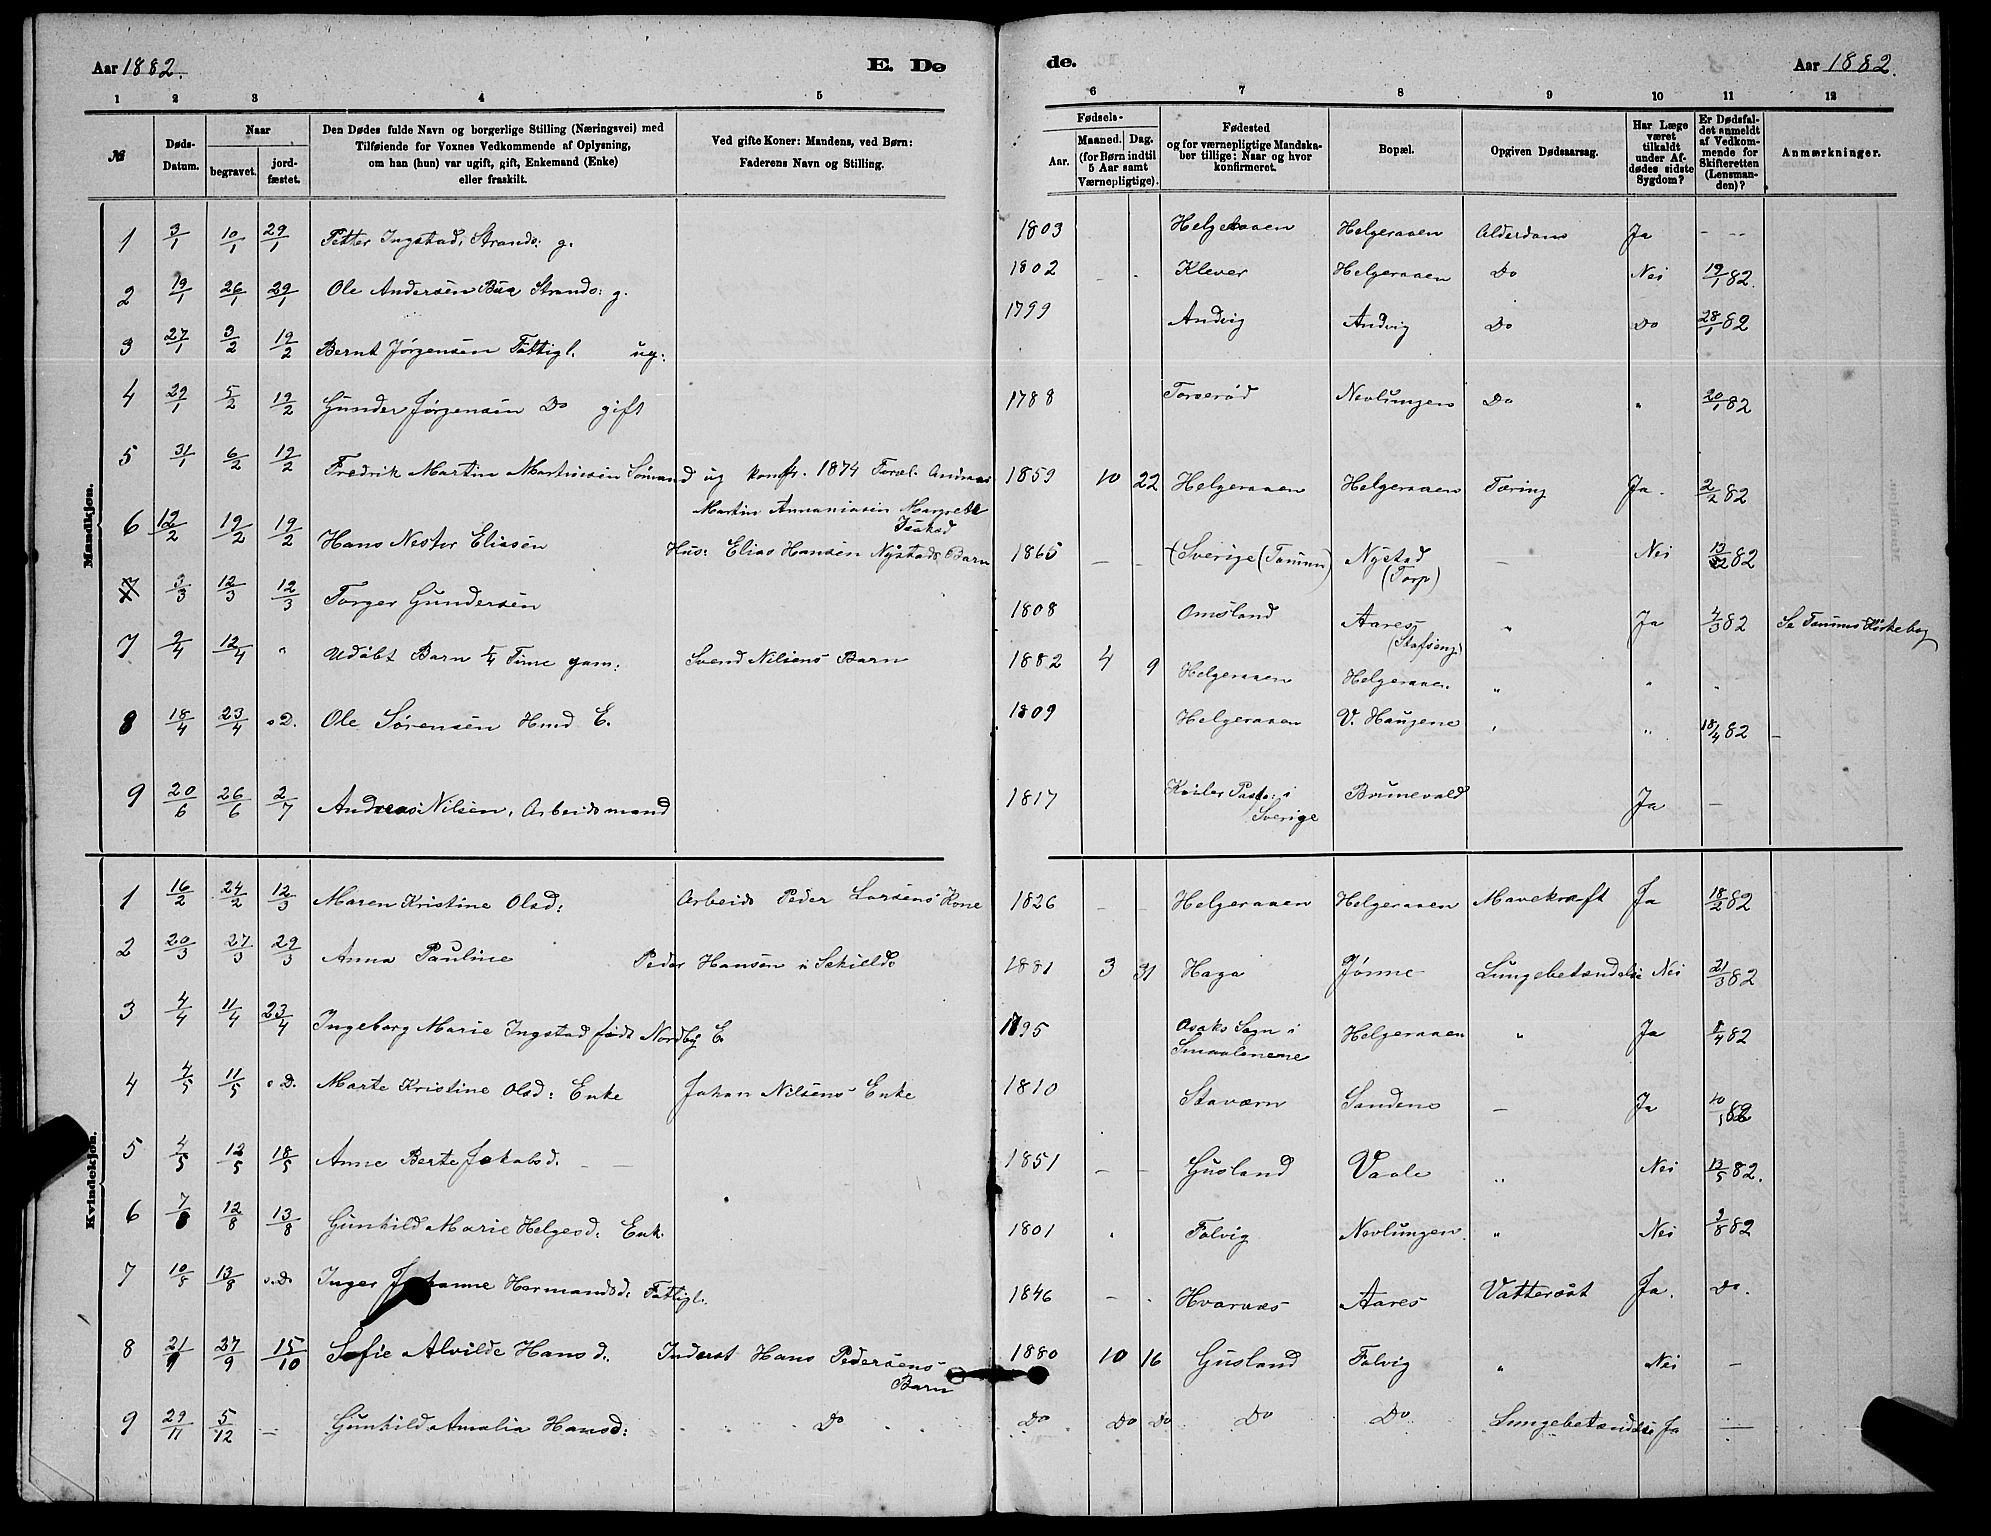 Aar 1882. E. Dø
de. Aar 1882.
1 2 3 4 5
6 7 8 9 10 11 12
№ Døds-Datum. Naar begravet. jord-fæstet. Den Dødes fulde Navn og borgerlige Stilling (Næringsvei) med Tilføiende for Voxnes Vedkommende af Oplysning, om han (hun) var ugift, gift, Enkemand (Enke) eller fraskilt. Ved gifte Koner: Mandens, ved Børn: Faderens Navn og Stilling.
Fødsels- Aar. Maaned. Dag. (for Børn indtil 5 Aar samt Værnepligtige). Fødested og for værnepligtige Mandskaber tillige: Naar og hvor konfirmeret. Bopæl. Opgiven Dødsaarsag. Har Læge været tilkaldt under Afdødes sidste Sygdom? Er Dødsfaldet anmeldt af Vedkommende for Skifteretten (Lensmanden)? Anmærkninger.
Mandkjøn.
1 3/1 10/1 29/1 Petter Ingstad, Strands: g. 1803 Helgeraaen Helgeraaen Alderdoms Ja - --
2 19/1 26/1 29/1 Ole Andersen Bua Strands: g. 1802 - . Klever Helgeraaen Do Nei 19/1 82.
3 27/1 3/2 19/2 Bernt Jørgensen Fattigl. ug: 1799 Andvig Andvig Do Do 28/1 82
4 29/1 5/2 19/2 Gunder Jørgensen Do gift 1788 Torserød Nevlungen Do " 20/1 82
5 31/1 6/2 19/2 Fredrik Martin Martinsen Sømand ug konfr. 1874 1859 10 22 Helgeraaen Helgeraaen Tæring Ja. 2/2 82
Martin Annaniasen Margrete
6 12/2 19/2 19/2 Hans Nestor Eliasen Hus: Elias Hansen Nystads Barn 1865 - - (Sverige (Tanum) Nystad (Torp) - Nei 13/2 82
7 3/3 12/3 12/3 Torger Gundersen 1808 Omsland Aares " Ja 4/3 82 Se Tanums Kirkebog
7 9/4 12/4 " Udøbt Barn 5/4 Time gam: Svend Nilsens Barn 1882 4 9 Helgeraaen Helgeraaen " " "
8 18/4 23/4 s.D. Ole Sørensen Hmd E. 1809 Helgeraaen V. Haugene " " 18/4 82 -
9 20/6 26/6 2/7 Andreas Nilsen, Arbeidsmand 1817 Sverige Brunevald Ja -
Kvindekjøn.
1 16/2 24/2 12/3 Maren Kristine Olsd: Arbeids Peder Larsens Kone 1826 - - Helgeraaen Helgeraaen Mavekræft Ja 18/2 82
2 20/3 27/3 29/3 Anna Pauline Peder Hansen i Sekilds 1881 3 31 Haga Jønne Lungebetændelse Nei 21/3 82
3 4/4 11/4 23/4 Ingeborg Marie Ingstad født Nordby E. 1795 Asaks Sogn i Smaalenene Helgeraaen " Ja 8/4 82
4 4/5 11/5 s.D. Marte Kristine Olsd: Enke Johan Nilsens Enke 1810 Staværn Sandene - Ja 10/5 82
5 4/5 12/5 18/5 Anne Berte Jakobsd. - - 1851 - - Gusland Vaale " Nei 13/5 82.
6 7/8 12/8 13/8 Gunhild Marie Helgesd: Enk. 1801 " Falvig Nevlungen " Nei 9/8 82
7 10/8 13/8 s.D. Inger Johanne Hermandsd: Fattigl. 1846 - . Hvarnæs Aares Vattersot Ja. Do.
8 21/9 27/9 15/10 Sofie Alvilde Hansd. Inderst Hans Pedersens Barn 1880 10 16 Gusland Falvig " Nei -
9 29/11 5/12 - Gunhild Amalia Hansd: Do Do Do Do Do Do Lungebetændelse Ja -